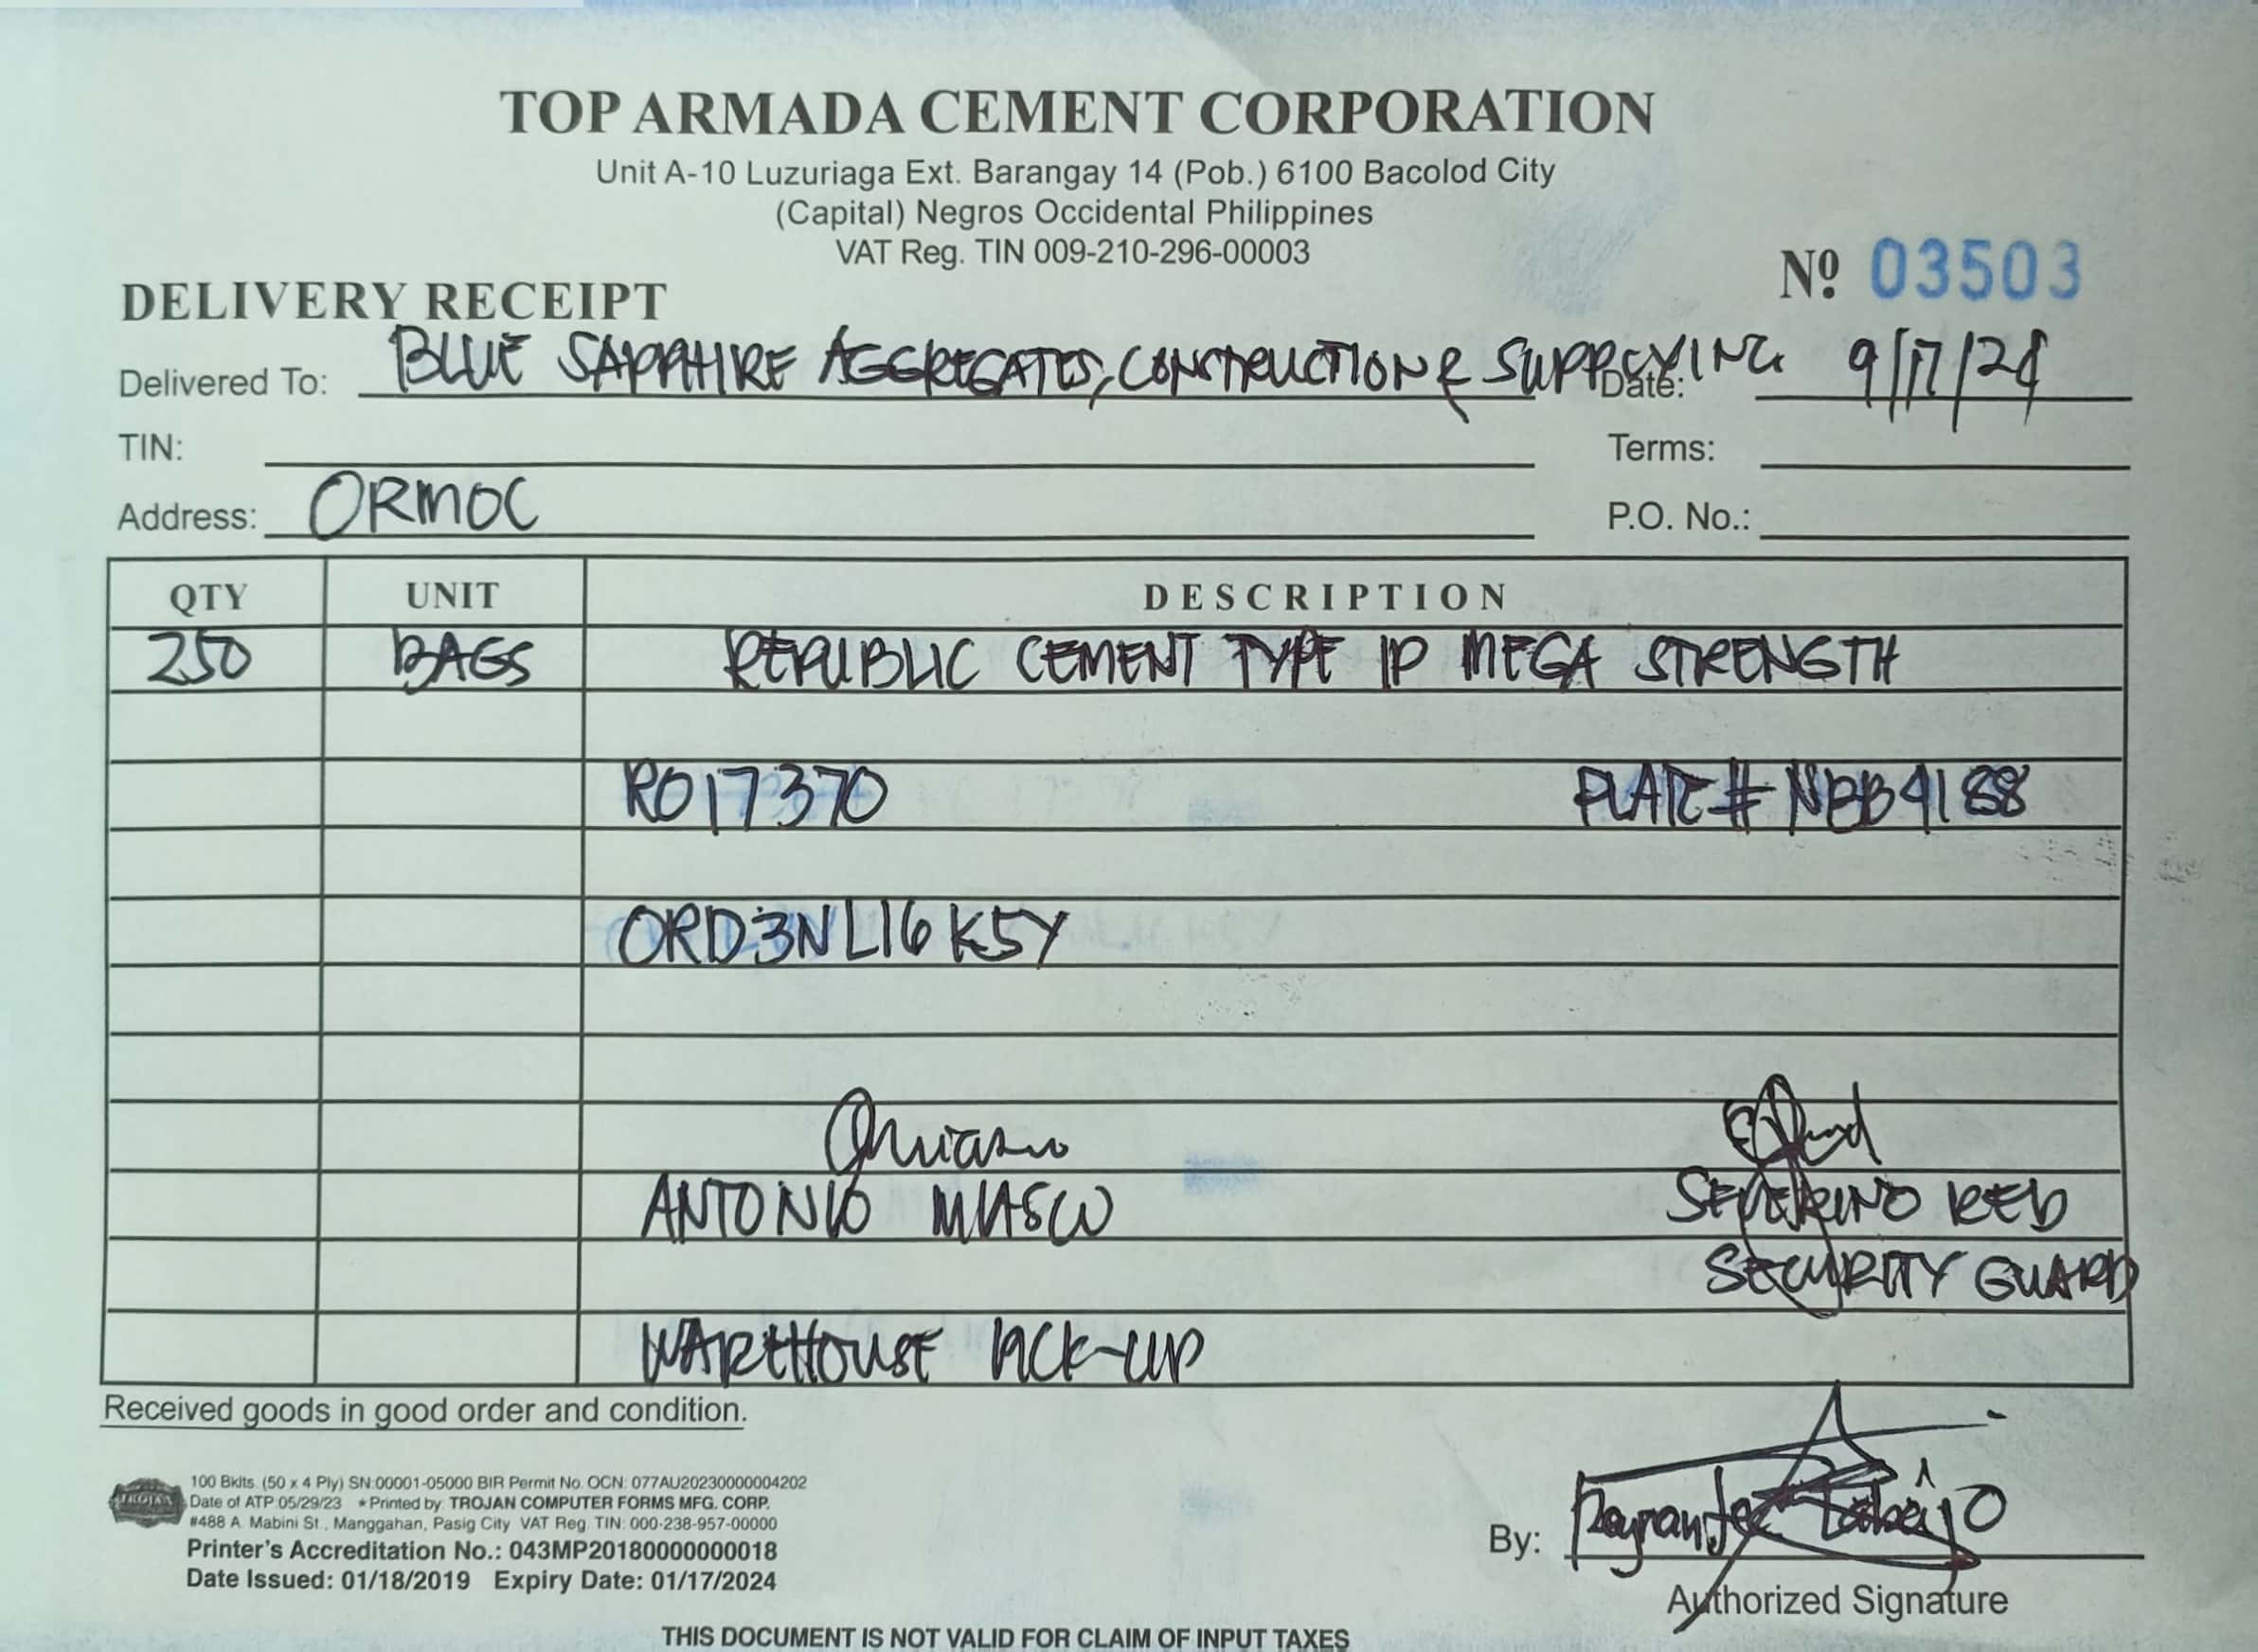 TOP ARMADA CEMENT CORPORATION
Unit A-10 Luzuriaga Ext. Barangay 14 (Pob.) 6100 Bacolod City
(Capital) Negros Occidental Philippines
VAT Reg. TIN 009-210-296-00003
Nº 03503
DELIVERY RECEIPT
Delivered To: BLUE SAPPHIRE AGGREGATES, CONSTRUCTION & SUPPLYING Date: 9/17/24
TIN: Terms:
Address: ORMOC P.O. No.:
QTY UNIT DESCRIPTION
250 BAGS REPUBLIC CEMENT TYPE 1P MEGA STRENGTH
RO17370 PLATE# NBB4188
ORD3NL16K5Y
ANTONIO
SEVERINO
SECURITY GUARD
WAREHOUSE PICK-UP
Received goods in good order and condition.
TROJAN
100 Bklts. (50 x 4 Ply) SN:00001-05000 BIR Permit No. OCN: 077AU20230000004202
Date of ATP 05/29/23 * Printed by: TROJAN COMPUTER FORMS MFG. CORP.
#488 A. Mabini St., Manggahan, Pasig City VAT Reg. TIN: 000-238-957-00000
Printer's Accreditation No.: 043MP20180000000018
Date Issued: 01/18/2019 Expiry Date: 01/17/2024
By:
Authorized Signature
THIS DOCUMENT IS NOT VALID FOR CLAIM OF INPUT TAXES